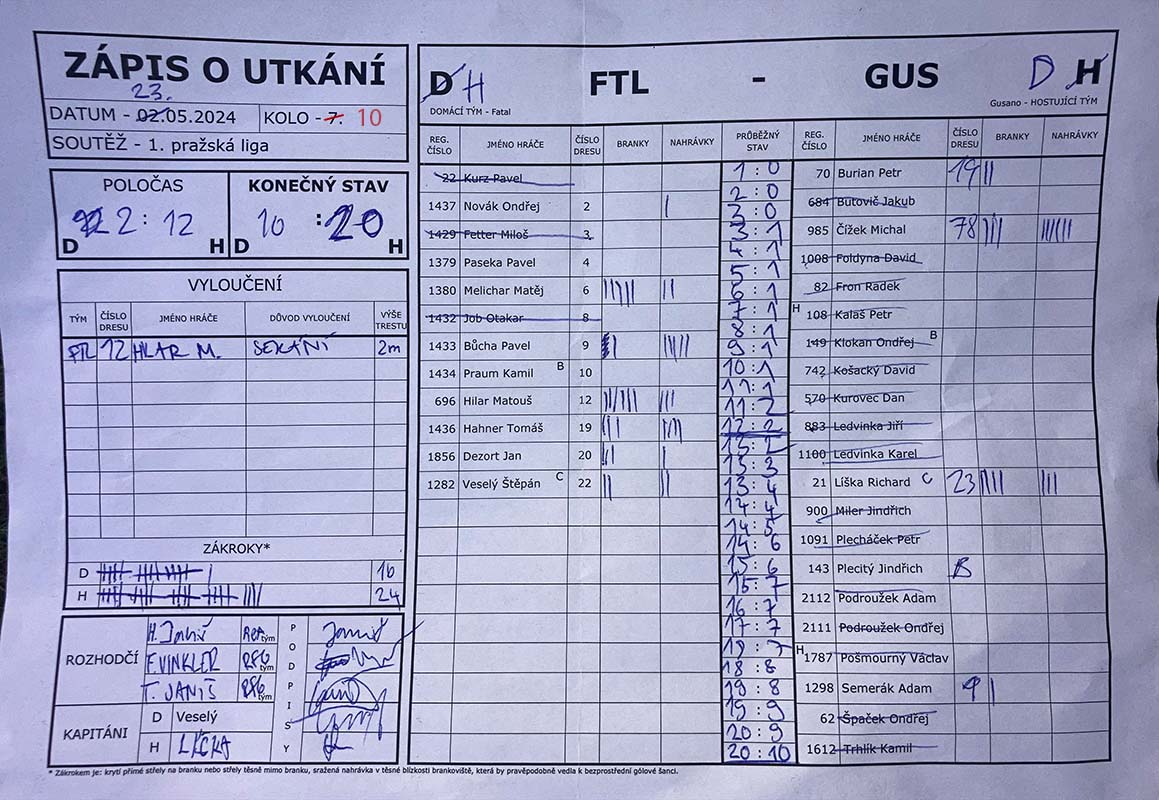 ZÁPIS O UTKÁNÍ
23.
DATUM - 02.05.2024
KOLO - 7. 10
SOUTĚŽ - 1. pražská liga
POLOČAS
2 : 12
D H
KONEČNÝ STAV
10 : 20
D H
VYLOUČENÍ
TÝM ČÍSLO DRESU JMÉNO HRÁČE DŮVOD VYLOUČENÍ VÝŠE TRESTU
FTL 12 HLAR M. SEKÁNÍ 2m
ZÁKROKY*
D 16
H 24
ROZHODČÍ
H. Janiš tým
F. VINKLER RBG tým
T. JANIŠ RBG tým
PODPISY
KAPITÁNI
D Veselý
H LÍČKA
D H FTL - GUS D H
DOMÁCÍ TÝM - Fatal
Gusano - HOSTUJÍCÍ TÝM
REG. ČÍSLO JMÉNO HRÁČE ČÍSLO DRESU BRANKY NAHRÁVKY PRŮBĚŽNÝ STAV REG. ČÍSLO JMÉNO HRÁČE ČÍSLO DRESU BRANKY NAHRÁVKY
22 Kurz Pavel
1437 Novák Ondřej 2 |
1429 Fetter Miloš 3
1379 Paseka Pavel 4
1380 Melichar Matěj 6
1432 Job Otakar 8
1433 Bůcha Pavel 9
1434 Praum Kamil B 10
696 Hilar Matouš 12
1436 Hahner Tomáš 19
1856 Dezort Jan 20
1282 Veselý Štěpán C 22
1 : 0
2 : 0
3 : 0
3 : 1
4 : 1
5 : 1
6 : 1
7 : 1
8 : 1
9 : 1
10 : 1
11 : 1
11 : 2
12 : 2
13 : 2
13 : 3
13 : 4
14 : 4
14 : 5
14 : 6
15 : 6
15 : 7
16 : 7
17 : 7
18 : 7
18 : 8
19 : 8
19 : 9
20 : 9
20 : 10
70 Burian Petr 19 ||
684 Butovič Jakub
985 Čížek Michal 78 ||| ||||||
1008 Foldyna David
82 Fron Radek
H 108 Kalaš Petr
149 Klokan Ondřej B
742 Košacký David
570 Kurovec Dan
883 Ledvinka Jiří
1100 Ledvinka Karel
21 Líška Richard C 23 |||| |||
900 Miler Jindřich
1091 Plecháček Petr
143 Plecitý Jindřich B
2112 Podroužek Adam
2111 Podroužek Ondřej
H 1787 Pošmourný Václav
1298 Semerák Adam 9 |
62 Špaček Ondřej
1612 Trhlík Kamil
* Zákrokem je: krytí přímé střely na branku nebo střely těsně mimo branku, sražená nahrávka v těsné blízkosti brankoviště, která by pravěpodobně vedla k bezprostřední gólové šanci.